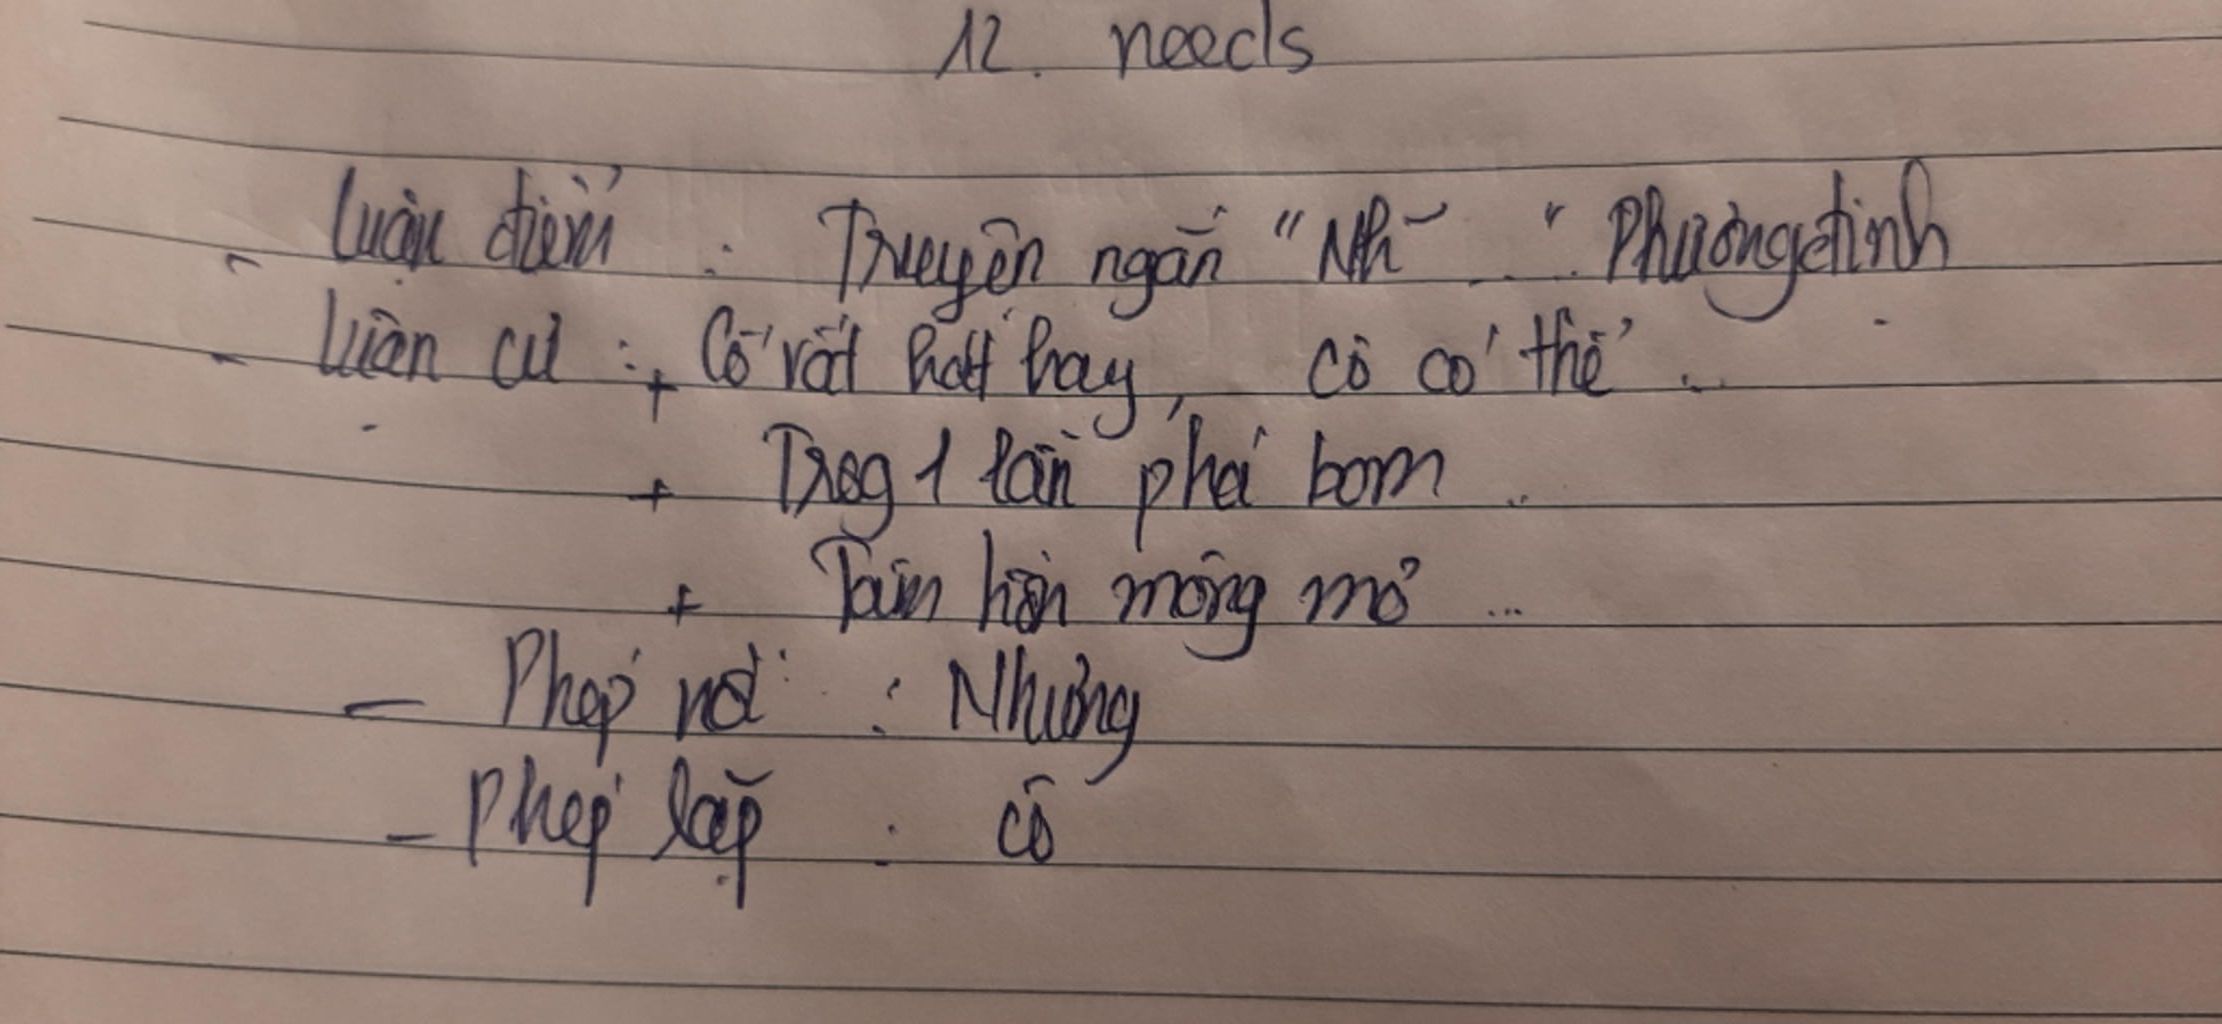 12. needs
- Luận điểm : Truyện ngắn "Nh~ ... " Phương Định
- Luận cứ : + Cô rất hát hay, cô có thể ...
+ Trog 1 lần phá bom ...
+ Tâm hồn mộng mơ ...
- Phép nối : Nhưng
- Phép lặp : cô